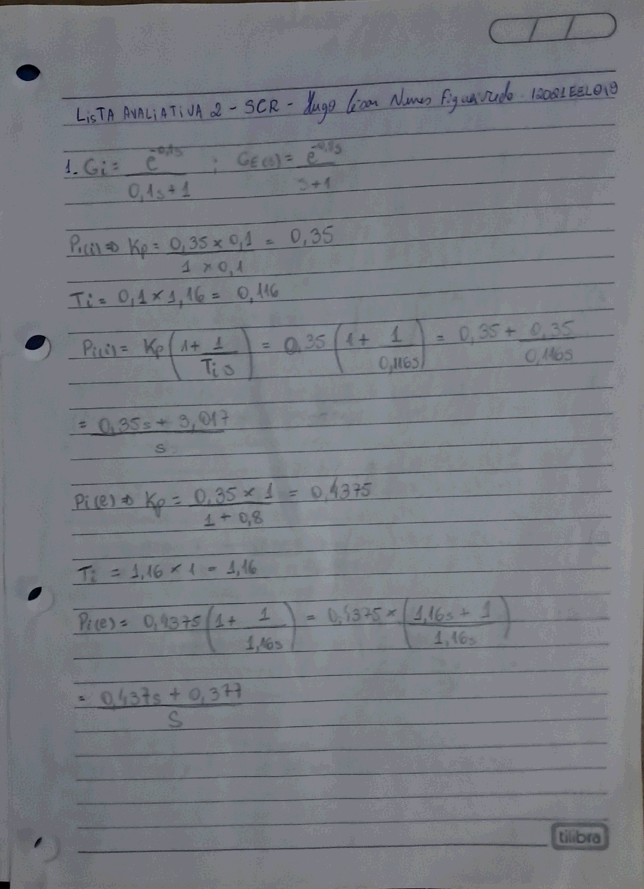 LISTA AVALIATIVA 2 - SCR - Hugo Nunes Figueiredo
1. Gi = e^-0,1s / 0,1s+1 ; GE(s) = e^-0,8s / s+1
Pi(i) ⇒ Kp = 0,35 × 0,1 / 1 × 0,1 = 0,35
Ti = 0,1 × 1,16 = 0,116
Pi(i) = Kp (1 + 1 / Ti s) = 0,35 (1 + 1 / 0,116s) = 0,35 + 0,35 / 0,116s
= 0,35s + 3,017 / s
Pi(e) ⇒ Kp = 0,35 × 1 / 1 + 0,8 = 0,4375
Ti = 1,16 × 1 = 1,16
Pi(e) = 0,4375 (1 + 1 / 1,16s) = 0,4375 × (1,16s + 1 / 1,16s)
= 0,437s + 0,377 / S
tilibra